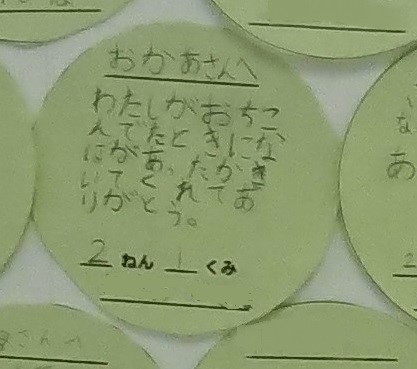 おかあさんへ
わたしがおちこ
んでたときにな
にがあったかき
いてくれてあ
りがとう。
2 ねん 1 くみ
さんへ
な
あ
2